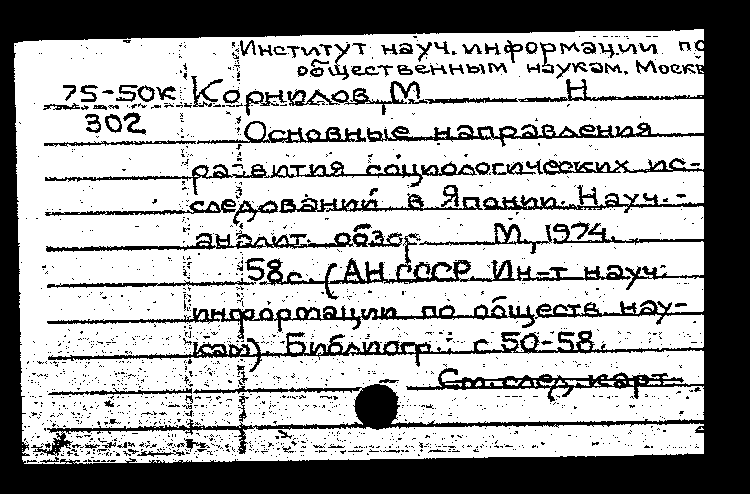 Институт науч. информации по
общественным наукам. Москв
75-50к Корнилов, М Н
302 Основные направления
развития социологических ис-
следований в Японии. Науч.-
аналит. обзор М., 1974.
58с. (АН СССР. Ин-т науч.
информации по обществ. нау-
кам). Библиогр.: с 50-58.
См. след. карт.